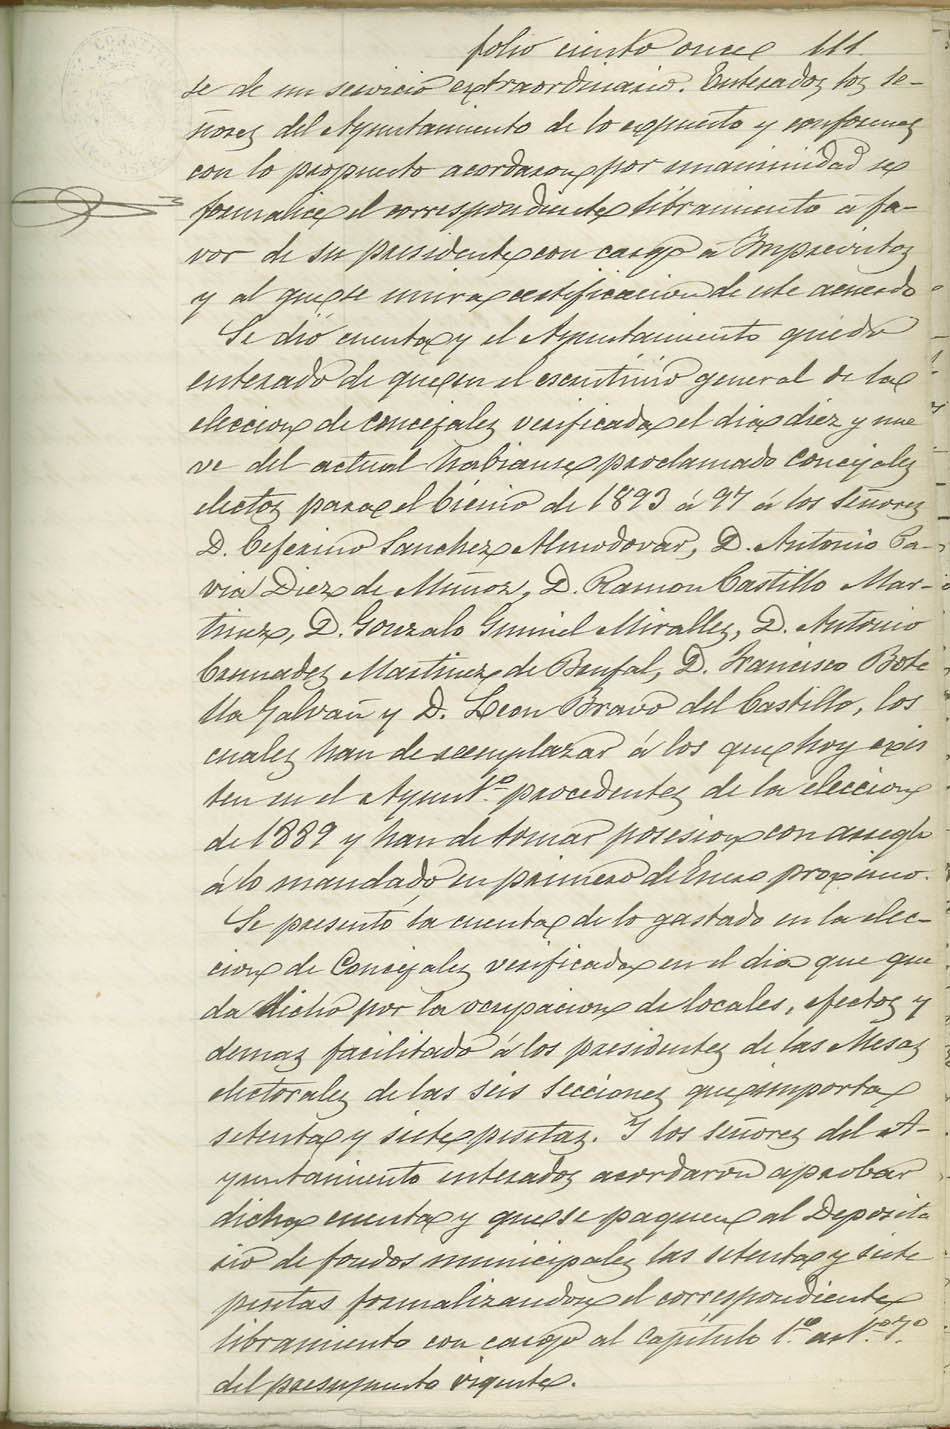 folio ciento once 111
se de un servicio extraordinario. Enterados los se-
ñores del Ayuntamiento de lo expuesto y conformes
con lo propuesto acordaron por unanimidad se
formalice el correspondiente libramiento á fa-
vor de su presidente con cargo á Imprevistos
y al que se unira certificacion de este acuerdo
Se dió cuenta y el Ayuntamiento quedo
enterado de que en el escrutinio general de la
eleccion de concejales verificada el dia diez y nue
ve del actual habianse proclamado concejales
electos para el bienio de 1893 á 97 á los señores
D. Ceferino Sanchez Almodovar, D. Antonio Pa-
via Diez de Muñoz, D. Ramon Castillo Mar-
tinez, D. Gonzalo Gumiel Miralles, D. Antonio
Bermadez Martinez de Bonfal, D. Francisco Bote
lla Galvañ y D. Leon Bravo del Castillo, los
cuales han de reemplazar á los que hoy exis
ten en el Ayunt.º procedentes de la eleccion
de 1889 y han de tomar posesion con arreglo
á lo mandado en primero de Enero proximo.
Se presentó la cuenta de lo gastado en la elec-
cion de Concejales verificada en el dia que que
da dicho por la ocupacion de locales, efectos y
demas facilitado á los presidentes de las Mesas
electorales de las seis secciones que importa
setenta y siete pesetas. Y los señores del A-
yuntamiento enterados acordaron aprobar
dicha cuenta y que se paguen al Deposita
rio de fondos municipales las setenta y siete
pesetas formalizandose el correspondiente
libramiento con cargo al Capítulo 1.º art.º 7.º
del presupuesto vigente.